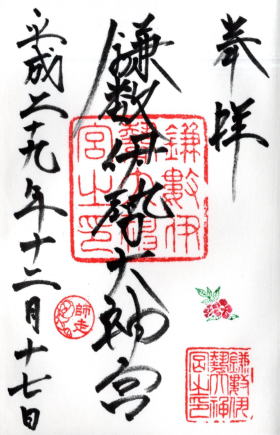 奉拝
謙數伊勢大神宮
平成二十九年十二月十七日
鎌數伊
勢大神
宮之印
師走
鎌數伊
勢大神
宮之印